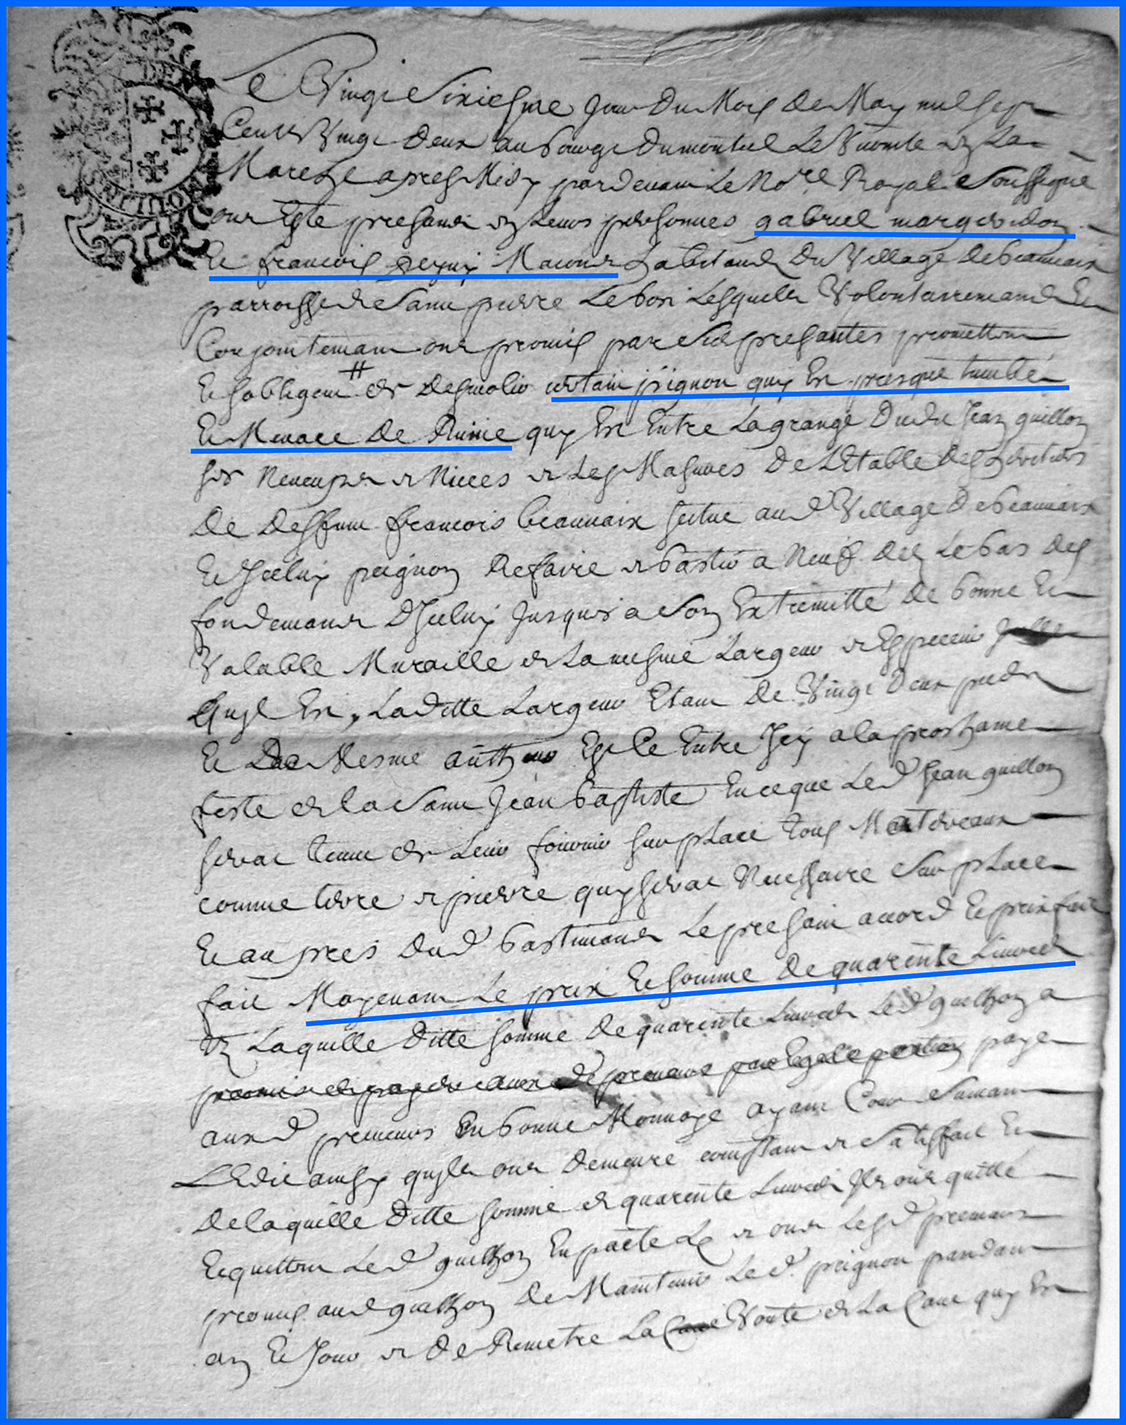 Le Vingt Sixiesme Jour Du Mois De May mil sept
Cents Vingt Deux au bourg Dumonteil Le Viconte en La
Marche apres Midy pardevant Le No.re Royal Soussigné
ont Esté presants en Leurs personnes gabriel margeridon
Et francois peyny Macons habitants Du Village debeauvais
parroisse de Saint pierre Lebost Lesquels Vollontairement Et
Conjointemant ont promis par Ses presantes promettent
Et sobligent # de Desmolir certain pignon quy Est presque tumbé
Et Menace De Ruine quy Est Entre Lagrange Dudit Jean guillon
ses Neveux et Nieces et Les Masures De LEtable des heritiers
De Deffunt francois beauvaix scitue aud Village Debeauvaix
Et Jceluy peignon Refaire et bastir a Neuf dez Le bas des
fondemants DJceluy Jusques a Son Extremitté de bonne Et
Valable Muraille de La mesme Largeur et Espesseur
quyl Est, Laditte Largeur Etant De Vingt Deux pieds
Et De Mesme autheur Entre Jcy a la prochaine
feste de la Saint Jean baptiste En ceque Led Jean guillon
serat tenu de Leur fournir sur place tous Matereaux
comme terre et pierre quy serat Necessaire Sur place
Et au pres dud bastimant Le presant accord Et prix fait
fait Moyenant Le prix Et somme De quarente Livres
Laquelle ditte somme De quarente Livres Led guilhon a
promis de payer aux d preneurs par Egalle portion paye
aux d preneurs En bonne Monnoye ayant Cour Suivant
LEdit ainsy quyls ont demeuré comptant et Satisfait Et
De laquelle ditte somme de quarente Livres Jls ont quitté
Et quittent Led guilhon En pacte et ont Lesd preneurs
promis aud guilhon De Maintenir Led. peignon pandant
an Et Jour et De Remetre La Voute de La Cave quy Est